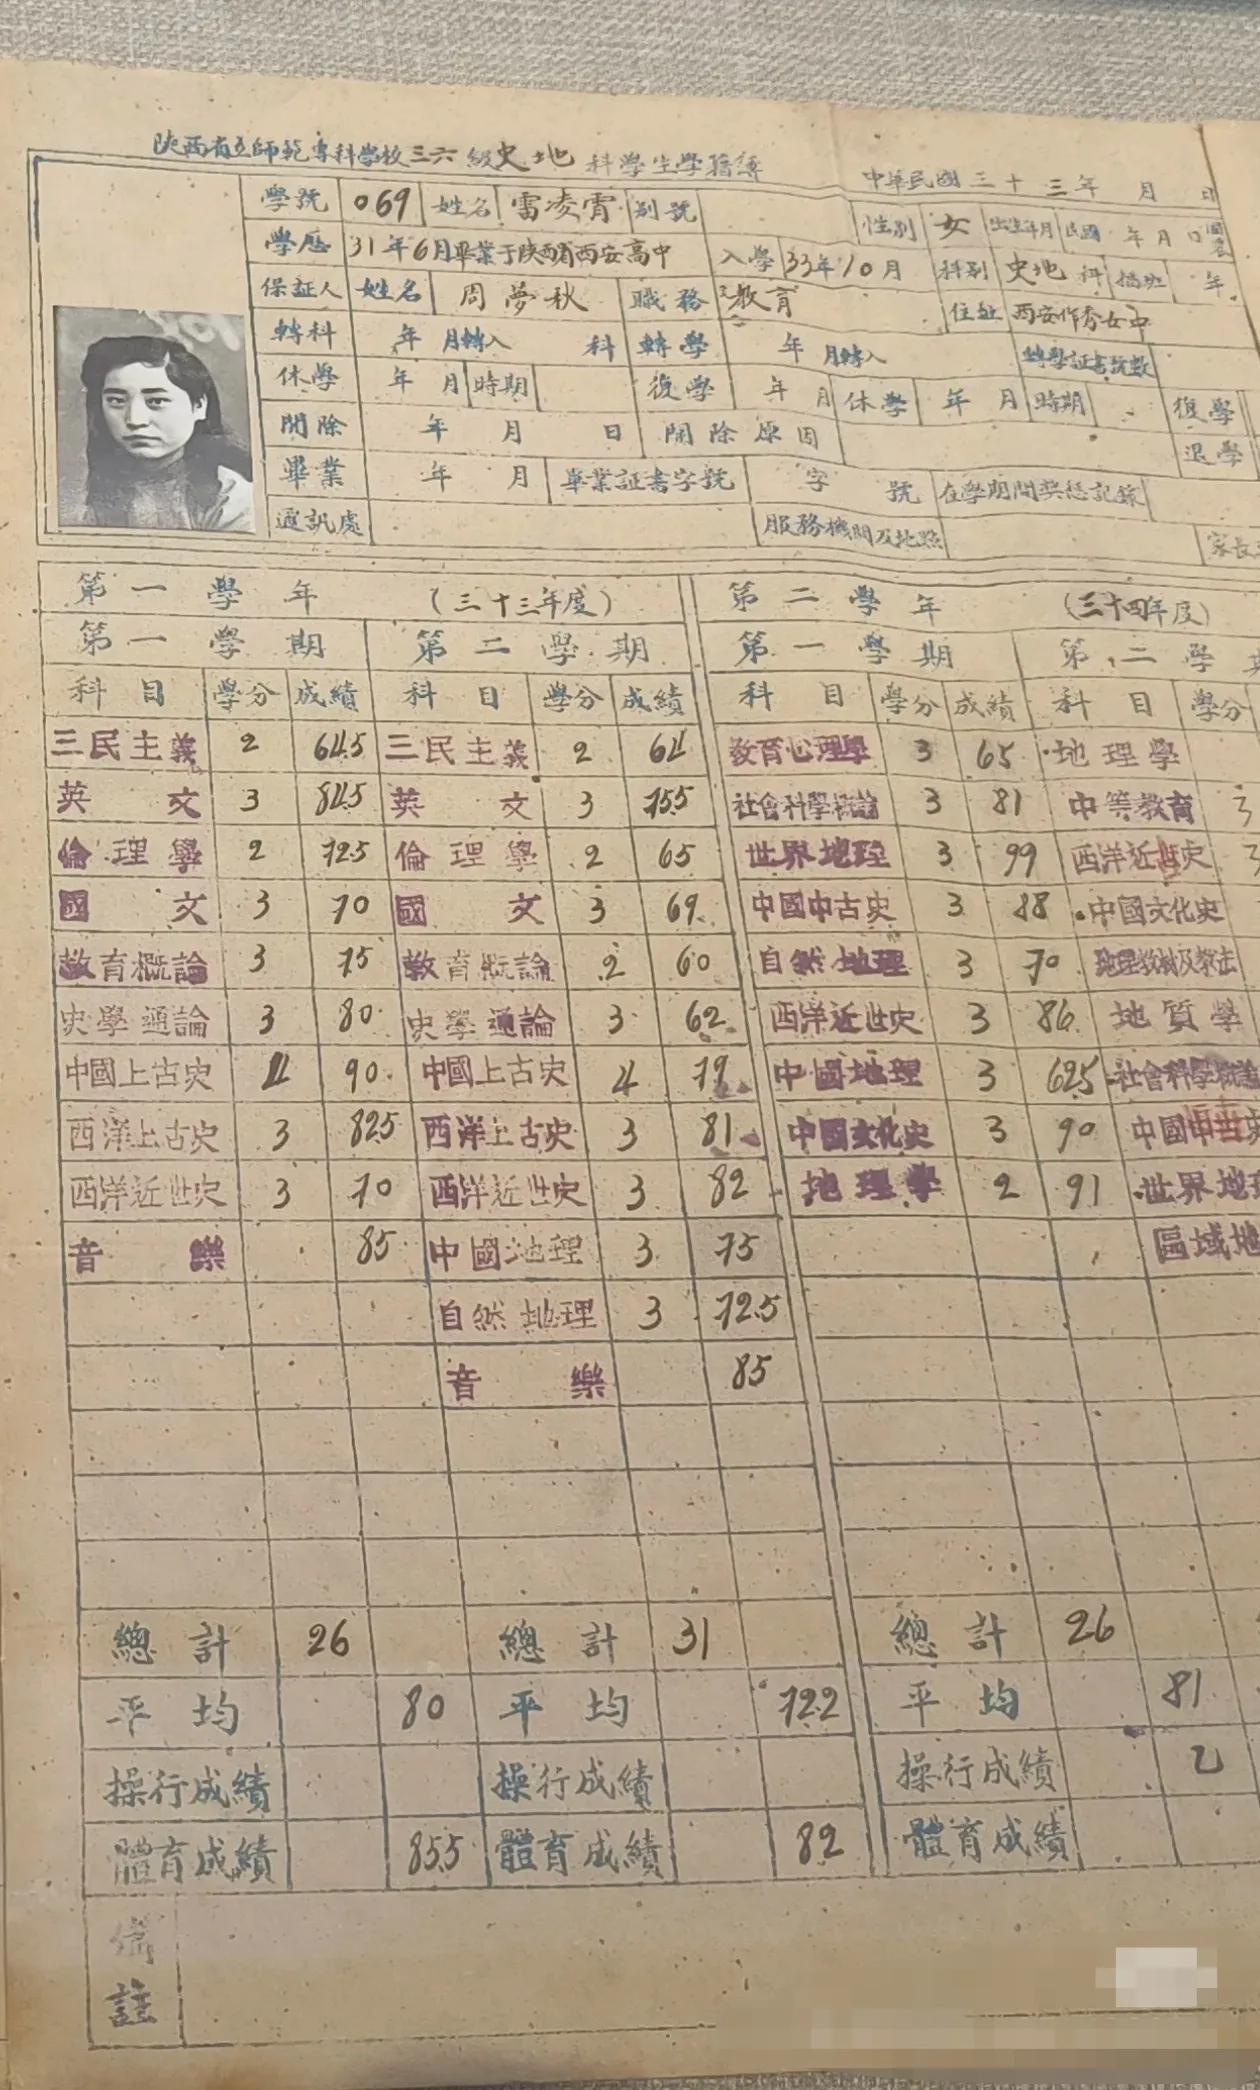 陝西省立師範專科學校三六級史地科學生學籍簿 中華民國三十三年 月 日
學號 069 姓名 雷凌霄 別號 性別 女 出生年月 民國 年 月 日
學歷 31年6月畢業于陝西省西安高中 入學 33年10月 科別 史地科 插班 年
保証人 姓名 周夢秋 職務 教育 住址 西安作秀女中
轉科 年 月轉入 科 轉學 年 月轉入 轉學証書號數
休學 年 月 時期 復學 年 月 休學 年 月 時期 復學
開除 年 月 日 開除原因 退學
畢業 年 月 畢業証書字號 字 號 在學期間獎懲記錄
通訊處 服務機關及地點 家長
第一學年 (三十三年度) 第二學年 (三十四年度)
第一學期 第二學期 第一學期 第二學
科目 學分 成績 科目 學分 成績 科目 學分 成績 科目 學分
三民主義 2 64.5 三民主義 2 64 教育心理學 3 65 地理學
英文 3 84.5 英文 3 75.5 社會科學概論 3 81 中等教育 3
倫理學 2 72.5 倫理學 2 65 世界地理 3 99 西洋近世史
國文 3 70 國文 3 69 中國中古史 3 88 中國文化史
教育概論 3 75 教育概論 2 60 自然地理 3 70 地理教材及教法
史學通論 3 80 史學通論 3 62 西洋近世史 3 86 地質學
中國上古史 4 90 中國上古史 4 79 中國地理 3 62.5 社會科學概論
西洋上古史 3 82.5 西洋上古史 3 81 中國文化史 3 90 中國中古史
西洋近世史 3 70 西洋近世史 3 82 地理學 2 91 世界地理
音樂 85 中國地理 3 75 區域地
自然地理 3 72.5
音樂 85
總計 26 總計 31 總計 26
平均 80 平均 72.2 平均 81
操行成績 操行成績 操行成績 乙
體育成績 85.5 體育成績 82 體育成績
備註